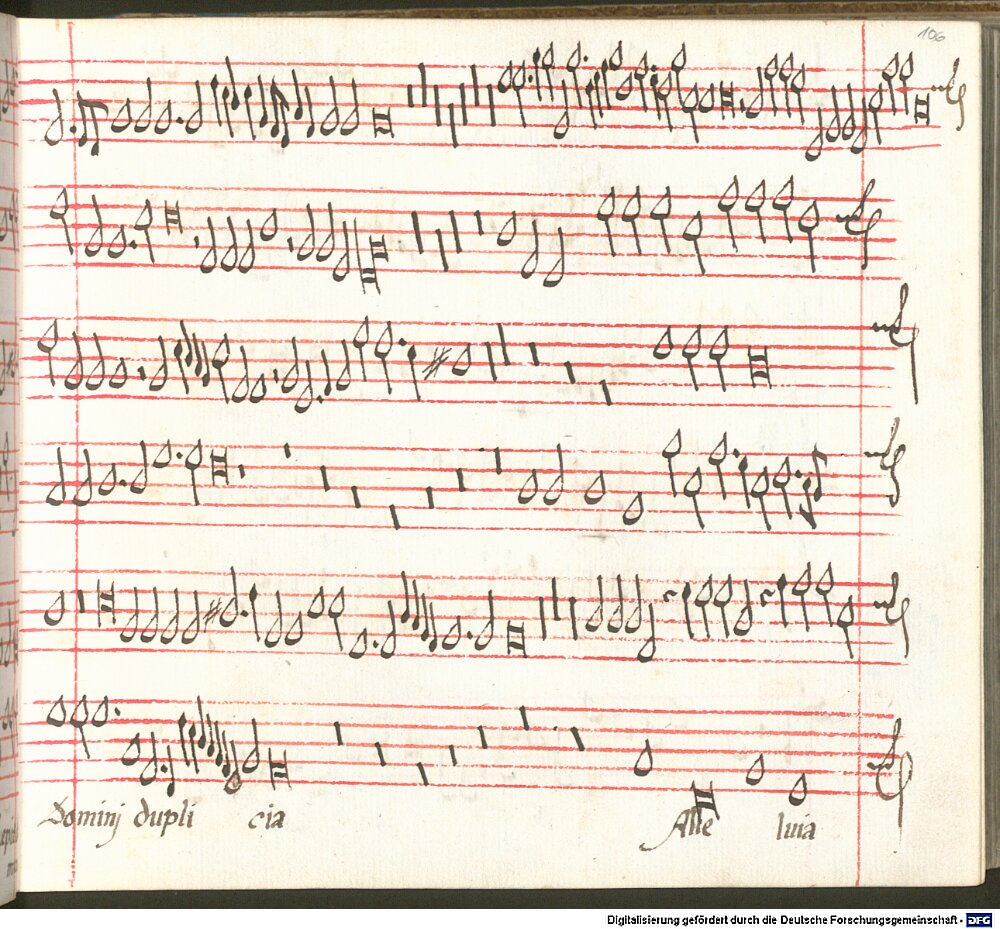 106
Dominj dupli cia Alle luia
Digitalisierung gefördert durch die Deutsche Forschungsgemeinschaft - DFG